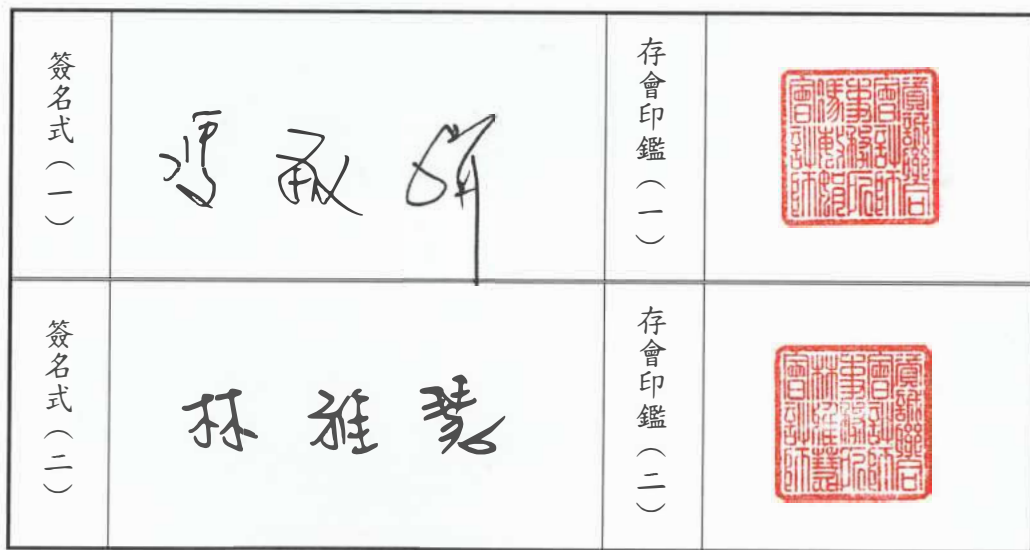 簽名式（一）
馮敏娟
存會印鑑（一）
資誠聯合
會計師
事務所
馮敏娟
會計師
簽名式（二）
林雅慧
存會印鑑（二）
資誠聯合
會計師
事務所
林雅慧
會計師